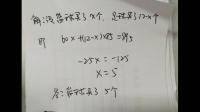 解:设篮球买了x个,足球买了12-x个
即 60x+(12-x)×85=895
-25x=-125
x=5
答:篮球买了5个